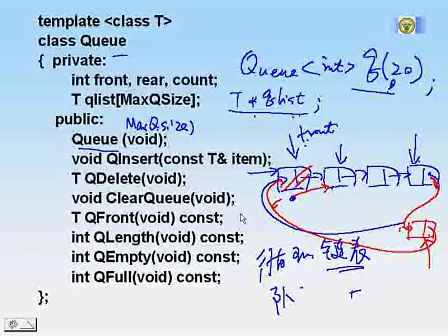 template <class T>
class Queue
{ private:
int front, rear, count;
T qlist[MaxQSize];
public:
MaxQSize)
Queue (void);
void QInsert(const T& item);
T QDelete(void);
void ClearQueue(void);
T QFront(void) const;
int QLength(void) const;
int QEmpty(void) const;
int QFull(void) const;
};
Queue <int> q(20)
T * qlist ;
front